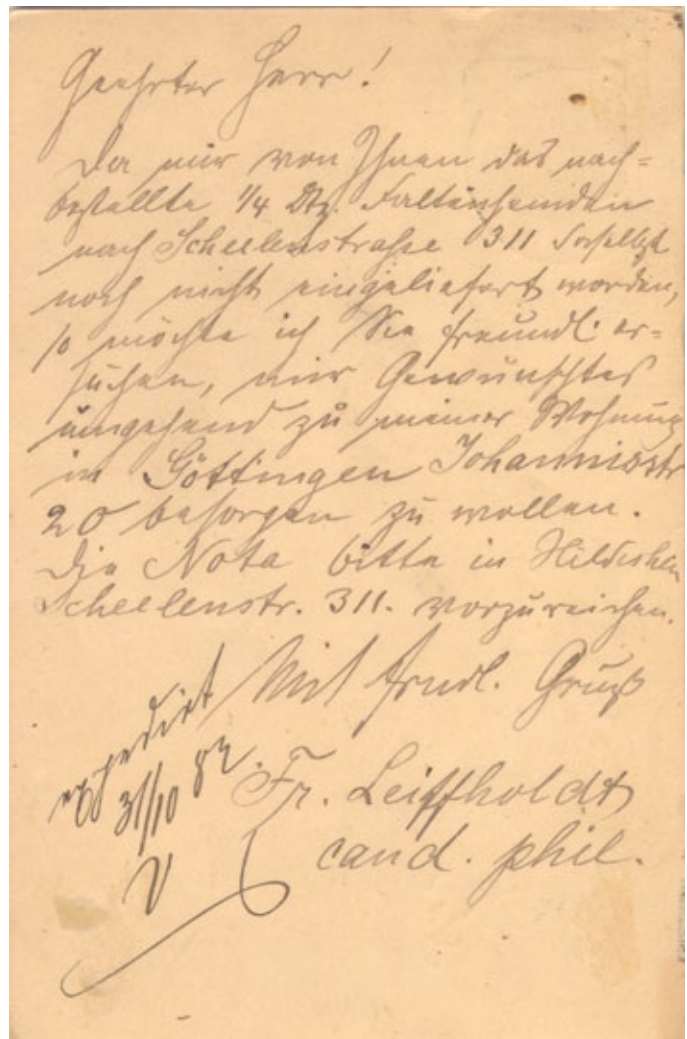 Geehrter Herr!
Da mir von Ihnen das nach=
bestellte 1/4 Dtz. Faltenhemden
nach Scheelenstraße 311 hierselbst
noch nicht eingeliefert worden,
so möchte ich Sie freundl. er=
suchen, mir Gewünschtes
umgehend zu meiner Wohnung
in Göttingen Johannisstr
20 besorgen zu wollen.
Die Nota bitte in Hildesheim
Scheelenstr. 311. vorzureichen.
Mit frndl. Gruß
Fr. Leiffholdt
cand. phil.
expedirt
31/10 82.